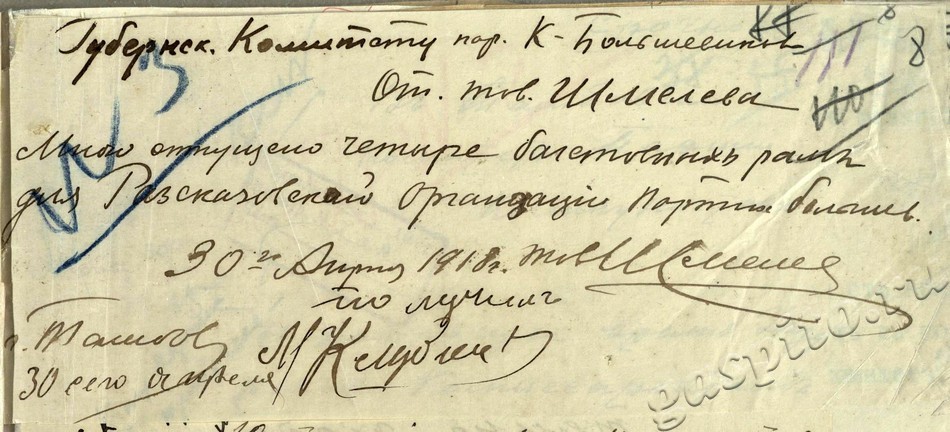 Губернск. Комитету пар. К-Большевиков
8
От. тов. Шмелева
Мною отпущено четыре багетовыхъ рамы
для Разсказовской Организаціи Портии больш.
30го Апреля 1918г. тов Шмелев
получилъ
г. Тамбов
30 сего апреля
gaspito.ru